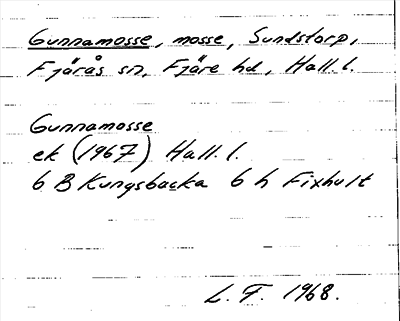 Gunnamosse, mosse, Sundstorp,
Fjärås sn, Fjäre hd, Hall. l.
Gunnamosse
ek (1967) Hall. l.
6 B Kungsbacka 6 h Fixhult
L. F. 1968.